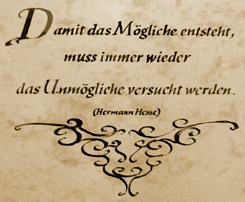 Damit das Mögliche entsteht,
muss immer wieder
das Unmögliche versucht werden.
(Hermann Hesse)